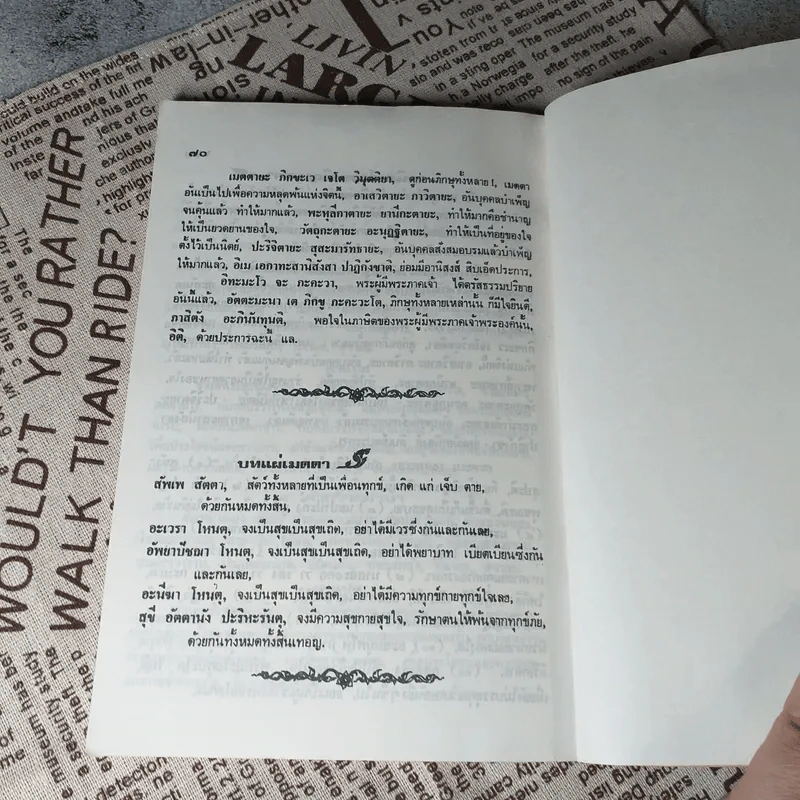 could build on the wides
critical success of the fir
volume andtake full me
LIVIN
LARG
stolen from
slo and was reco
in a sting oper The museum has
a Norwegia for a security study
charge after the theft, he
no sign of the pain
WOULD'T YOU RATHER
WALK THAN RIDE?
๗๐
เมตตายะ ภิกขะเว เจโต วิมุตติยา, ดูก่อนภิกษุทั้งหลาย !, เมตตา
อันเป็นไปเพื่อความหลุดพ้นแห่งจิตนี้, อาเสวิตายะ ภาวิตายะ, อันบุคคลบำเพ็ญ
จนคุ้นแล้ว ทำให้มากแล้ว, พะหุลีกาตายะ ยานีกะตายะ, ทำให้มากคือชำนาญ
ให้เป็นยวดยานของใจ, วัตถุกะตายะ อะนุฏฐิตายะ, ทำให้เป็นที่อยู่ของใจ
ตั้งไว้เป็นนิตย์, ปะริจิตายะ สุสะมารัทธายะ, อันบุคคลสั่งสมอบรมแล้วบำเพ็ญ
ให้มากแล้ว, อิเม เอกาทะสานิสังสา ปาฏิกังขาติ, ย่อมมีอานิสงส์ สิบเอ็ดประการ,
อิทะมะโว จะ ภะคะวา, พระผู้มีพระภาคเจ้า ได้ตรัสธรรมปริยาย
อันนี้แล้ว, อัตตะมะนา เต ภิกขู ภะคะวะโต, ภิกษุทั้งหลายเหล่านั้น ก็มีใจยินดี,
ภาสิตัง อะภินันทุนติ, พอใจในภาษิตของพระผู้มีพระภาคเจ้าพระองค์นั้น,
อิติ, ด้วยประการฉะนี้ แล.
บทแผ่เมตตา
สัพเพ สัตตา, สัตว์ทั้งหลายที่เป็นเพื่อนทุกข์, เกิด แก่ เจ็บ ตาย,
ด้วยกันหมดทั้งสิ้น,
อะเวรา โหนตุ, จงเป็นสุขเป็นสุขเถิด, อย่าได้มีเวรซึ่งกันและกันเลย,
อัพยาปัชฌา โหนตุ, จงเป็นสุขเป็นสุขเถิด, อย่าได้พยาบาท เบียดเบียนซึ่งกัน
และกันเลย,
อะนีฆา โหนตุ, จงเป็นสุขเป็นสุขเถิด, อย่าได้มีความทุกข์กายทุกข์ใจเลย,
สุขี อัตตานัง ปะริหะรันตุ, จงมีความสุขกายสุขใจ, รักษาตนให้พ้นจากทุกข์ภัย,
ด้วยกันทั้งหมดทั้งสิ้นเทอญ.